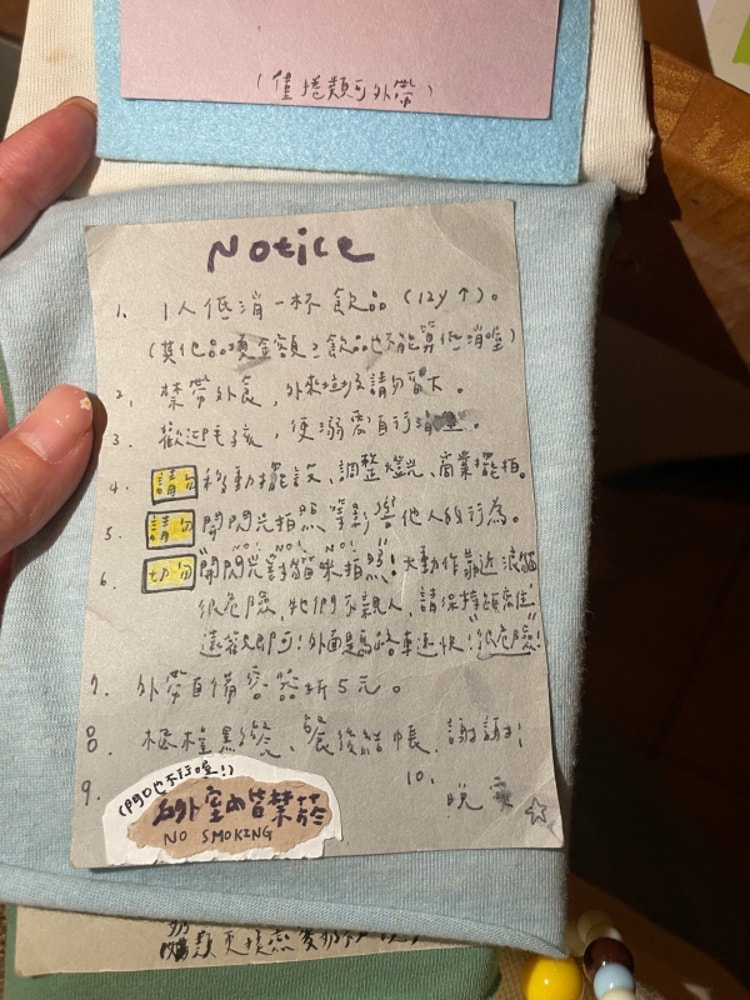 (僅捲類可外帶)
Notice
1. 1人低消一杯飲品(12y↑)。
(其他品項金額≥飲品也不能算低消喔)
2. 禁帶外食,外來垃圾請勿留下。
3. 歡迎毛孩,便溺需自行清理。
4. 請勿移動擺設、調整燈光、商業擺拍。
5. 請勿開閃光拍照等影響他人的行為。
NO! NO! NO!
6. 切勿"開閃光對貓咪拍照"!大動作靠近浪貓
很危險,牠們不親人,請保持距離
遠觀即可!外面是馬路車速快!"很危險"!
7. 外帶自備容器折5元。
8. 抵檯點餐、餐後結帳、謝謝!
9. (門口也不行喔!)
戶外室內皆禁菸
NO SMOKING
10.
類更換燕麥奶